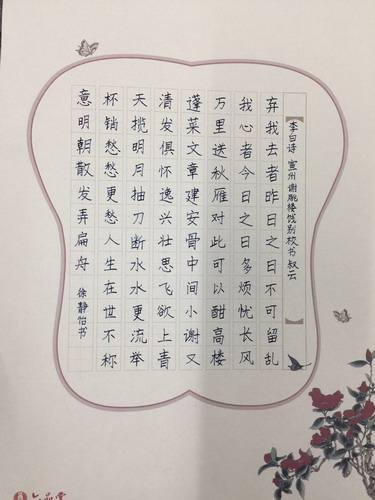 【李白诗 宣州谢朓楼饯别校书叔云】
弃我去者昨日之日不可留乱
我心者今日之日多烦忧长风
万里送秋雁对此可以酣高楼
蓬莱文章建安骨中间小谢又
清发俱怀逸兴壮思飞欲上青
天揽明月抽刀断水水更流举
杯销愁愁更愁人生在世不称
意明朝散发弄扁舟 徐静怡书
六品堂